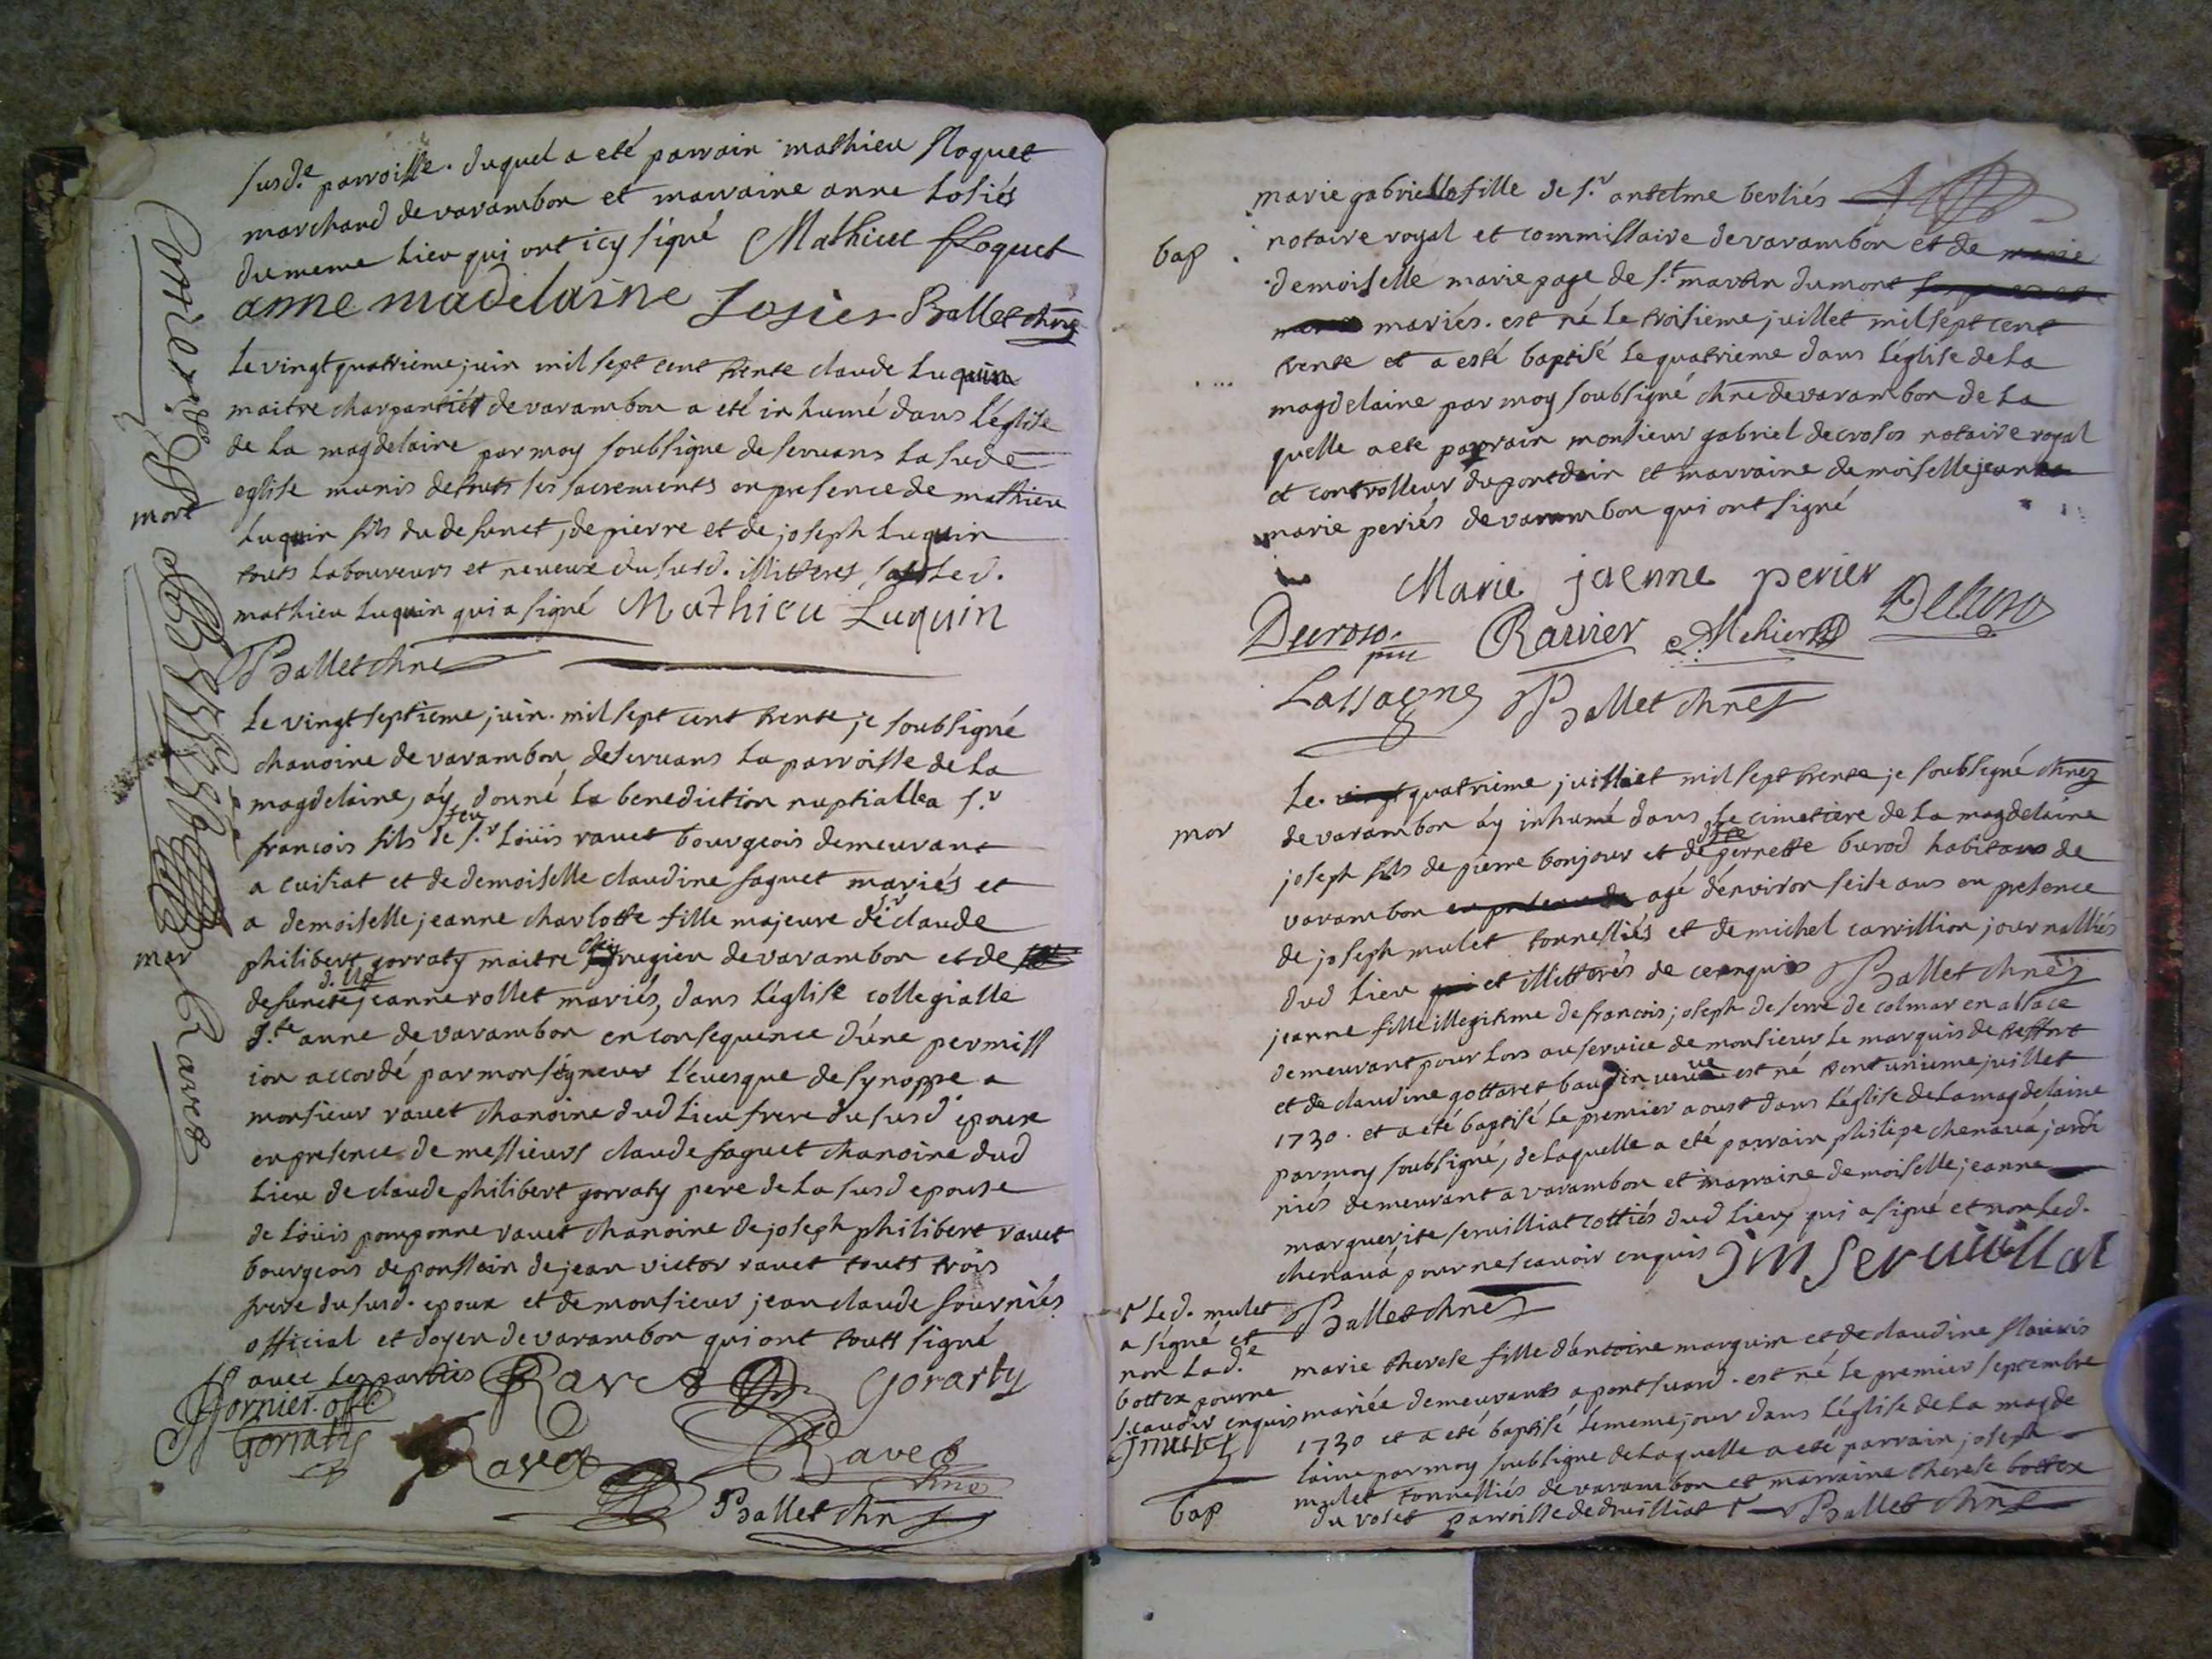 susd.e parroisse. duquel a eté parrain mathieu floquet
marchand de varambon et marraine anne Losiés
du meme Lieu qui ont icy signé Mathieu floquet
anne madelaine Losier Ballet chne
mort
Le vingt quatrieme juin mil sept cent trente claude Luquin
maitre charpantiér de varambon a eté inhumé dans L'églize
de La magdelaine par moy soubsigne deseruans La sud.e
eglise munis de touts ses sacrements en presence de mathieu
Luquin fils du defunct, de pierre et de joseph Luquin
touts Laboureurs et neueux du susd. illitteres sauf Led.
mathieu Luquin qui a signé Mathieu Luquin
Ballet chne
mar
Le vingt septieme juin mil sept cent trente je soubsigné
chanoine de varambon deseruans La parroisse de La
magdelaine, áy donné La benediction nuptialle a s.r
francois fils de feu s.r Loüis rauet bourgeois demeurant
a cuisiat et de demoiselle claudine faguet mariés et
a demoiselle jeanne charlotte fille majeure de s.r claude
philibert gorraty maitre chirugien de varambon et de
defuncte d.lle jeanne rollet mariés, dans L'église collegialle
S.te anne de varambon en consequence d'une permiss
ion accordé par monségneur L'euesque de synoppe a
monsieur rauet chanoine dud Lieu frere du susd. epoux
en presence de messieurs claude faguet chanoine dud
Lieu de claude philibert gorraty pere de La susd epouse
de Loüis pomponne rauet chanoine de joseph philibert rauet
bourgeois de ponssein de jean victor rauet touts trois
frere du susd. epoux et de monsieur jean claude fourniés
official et doyen de varambon qui ont touts signé
avec Les parties Ravet Gorarty
ffornier. off.
Gorraty
Ravet Ravet
chne
Ballet chne
Ravet
bap
marie gabrielle fille de s.r antelme berliés
notaire royal et commissaire de varambon et de marie
demoiselle marie page de s.t martin du mont
mariés. est né Le troisieme juillet mil sept cent
trente et a esté baptisé Le quatrieme dans L'églíse de La
magdelaine par moy soubsigné chne de varambon de La
quelle a ete parrain monsieur gabriel decrosos notaire royal
et controlleur du pontdain et marraine demoiselle jeanne
marie periés de varambon qui ont signé
Marie jaenne perier
Decroso Ravier Mehier Decroso
Lassagne Ballet chne
mor
Le vingt quatrieme juilliet mil sept trente je soubsigné chne
de varambon áy inhumé dans Le cimetiere de La magdelaine
joseph fils de pierre bonjour et de pernette burod habitans de
varambon en presence de agé d'enviror seise ans en presence
de joseph mulet tonnelliés et de michel carrillion journalliés
dud Lieu et illitterés de ce enquis Ballet chne
jeanne fille illegitime de francois joseph de serre de colmar en alsace
demeurant pour Lors au seruice de monsieur Le marquis de treffort
et de claudine gottaret baudin veuve est né trent unieme juillet
1730. et a eté baptisé Le premier aoust dans L'église de La magdelaine
par moy soubsigné, de Laquelle a eté parrain philipe chenauá jardi
niés demeurant a varambon et marraine demoiselle jeanne
marguerite seruilliat cottiés dud Lieu qui a signé et non Led.
chenauá pour ne scauoir enquis J M Seruiillat
Ballet chne
r Led. mulet
a signé et
non Lad.e
bottex pour ne
scauoir enquis
J mulet
bap
marie therese fille d'antoine marguin et de claudine flaixis
mariée demeurants a pont suard. est né Le premier septembre
1730 et a eté baptisé Le meme jour dans L'église de La magde
laine par moy soubsigne de Laquelle a eté parrain joseph
mulet tonnelliés de varambon et marraine therese bottex
du volet parroisse de druilliat r Ballet chne